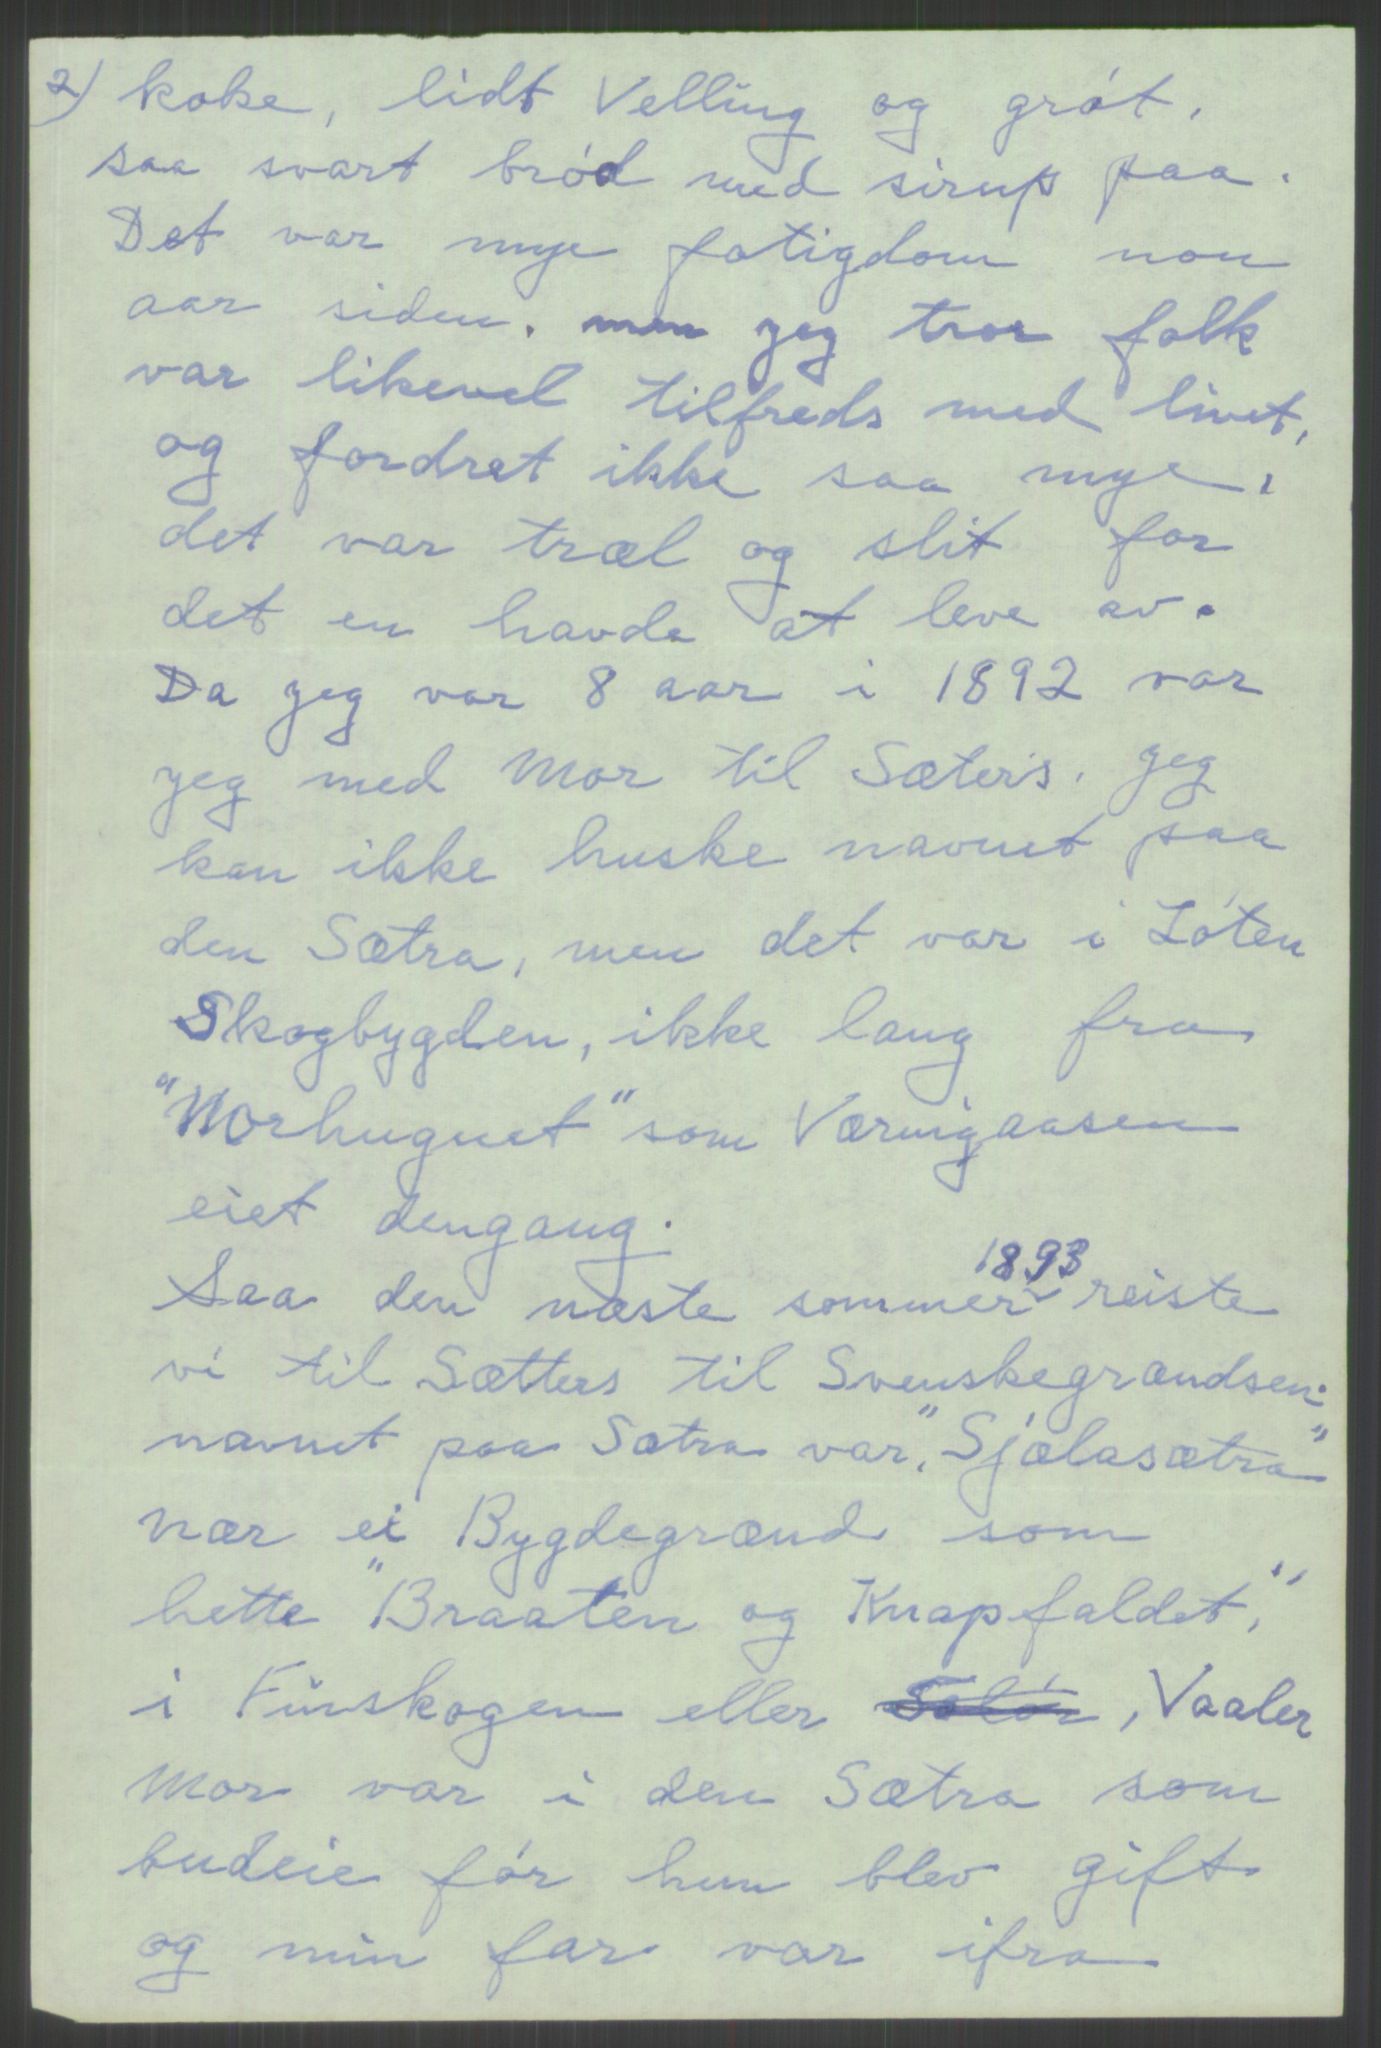 2) koke, lidt Velling og grót.
saa svart bród med sirup paa.
Det var mye fatigdom non
aar siden. men jeg tror folk
var likevel tilfreds med livet,
og fordret ikke saa mye,
det var træl og slit for
det en havde at leve av.
Da jeg var 8 aar i 1892 var
jeg med Mor til Sæters. jeg
kan ikke huske navnet paa
den Sætra, men det var i Lóten
Skogbygden, ikke lang fra
"Morhugnet" som Værnigaasen
eiet dengang.
Saa den næste sommer 1893 reiste
vi til Sætters til Svenskegrændsen.
navnet paa Sætra var, "Sjælasætra"
nær ei Bygdegrænd som
hette "Braaten og Knapfaldet,"
i Finskogen eller Solór, Vaaler
Mor var i den Sætra som
budeie fór hun blev gift
og min far var ifra